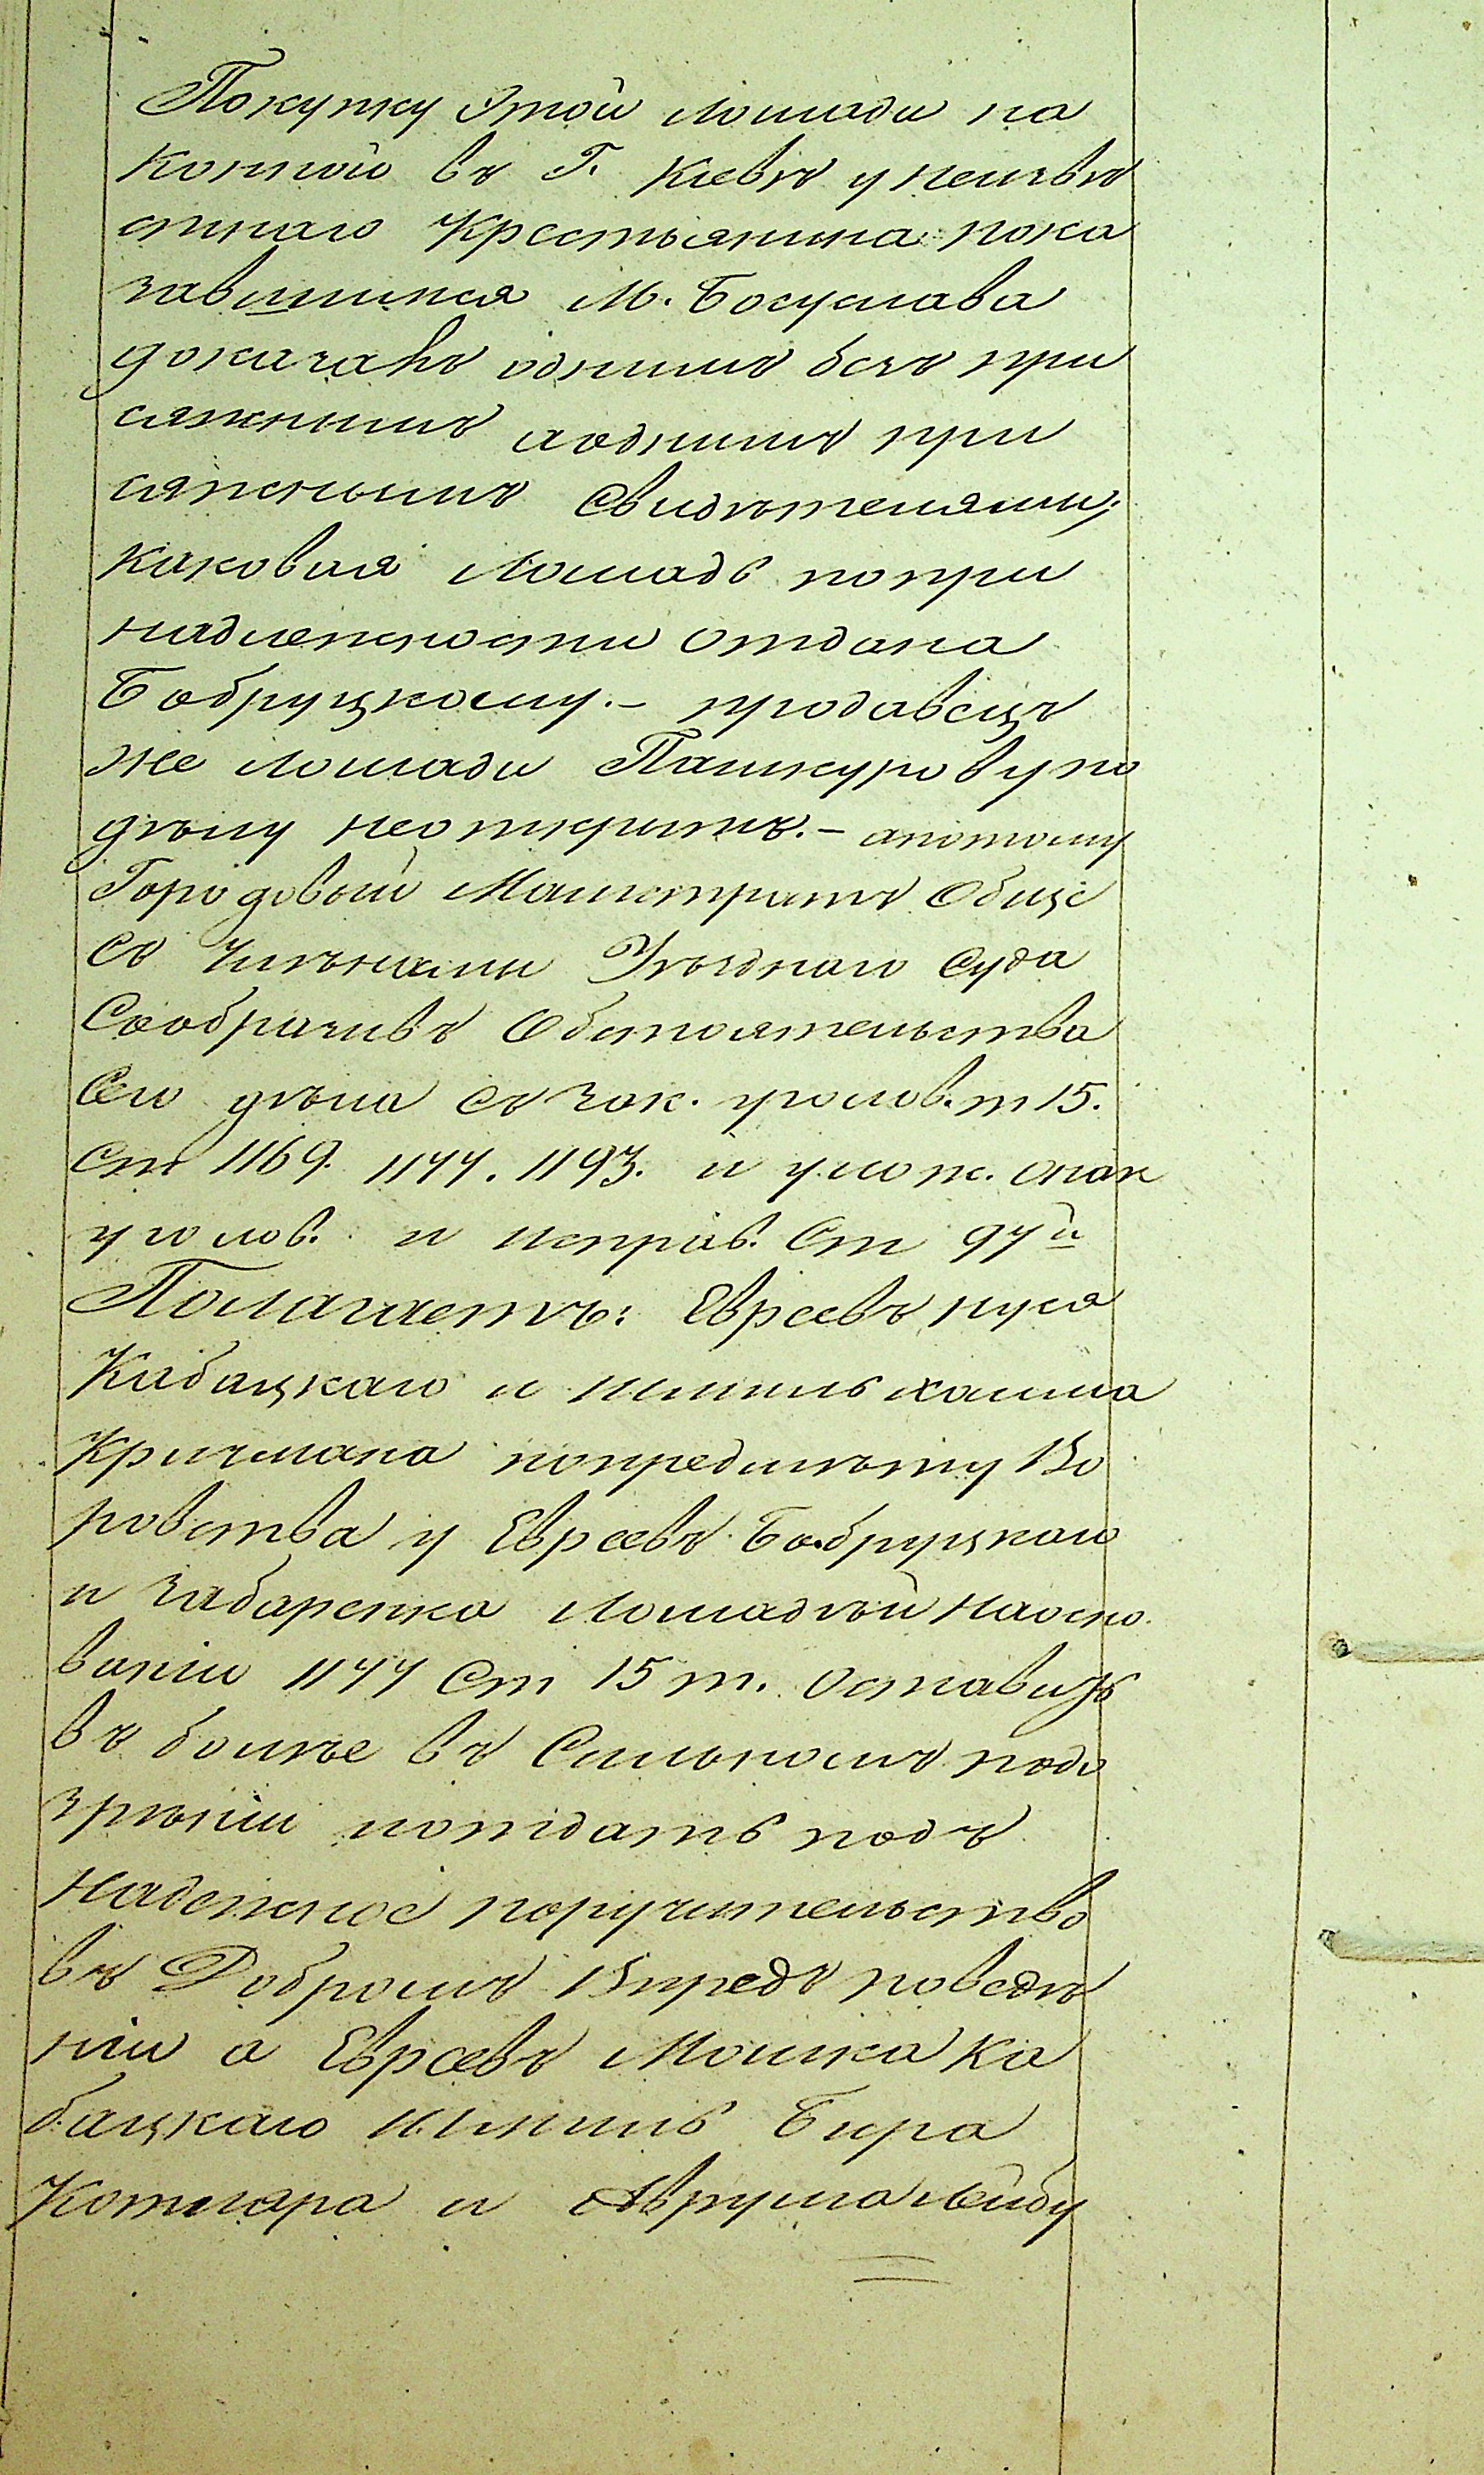 Покупку этой лошади на
конной въ Г. Кіевѣ у неизвѣ
стнаго крестьянина пока
завшимся М. Богуслава
доказанъ однимъ безъ при
сяжнымъ аоднимъ при
сяжнымъ свидѣтелями;
каковая лошадь попри
надлежности отдана
Бобруцкому. – продавецъ
же лошади Пашкуров упо
дѣлу неоткритъ. – апотому
Городовый Магистратъ Обще
съ членами Уѣзднаго Суда
Сообразивъ Обстоятельства
Сего дѣла съ зак. уголов. т 15.
Ст 1169. 1177. 1193. и улож. онак
уголов. и исправ. Ст 97й
Полагаетъ: Евреевъ нуся
Кабацкаго и шмиль хаима
Кричмана попредмѣту Во
ровства у Евреевъ Бобруцкаго
и Забаренка лошадѣй наосно
ваніи 1177 Ст 15 т. Оставить
въ болѣе въ Сильномъ подо
зрѣніи иотдать подъ
надежное поручительство
въ Добромъ Впредъ поведѣ
ніи а Евреевъ Мошка Ка
бацкаго Бера
Котляра и Аврума Лейбу